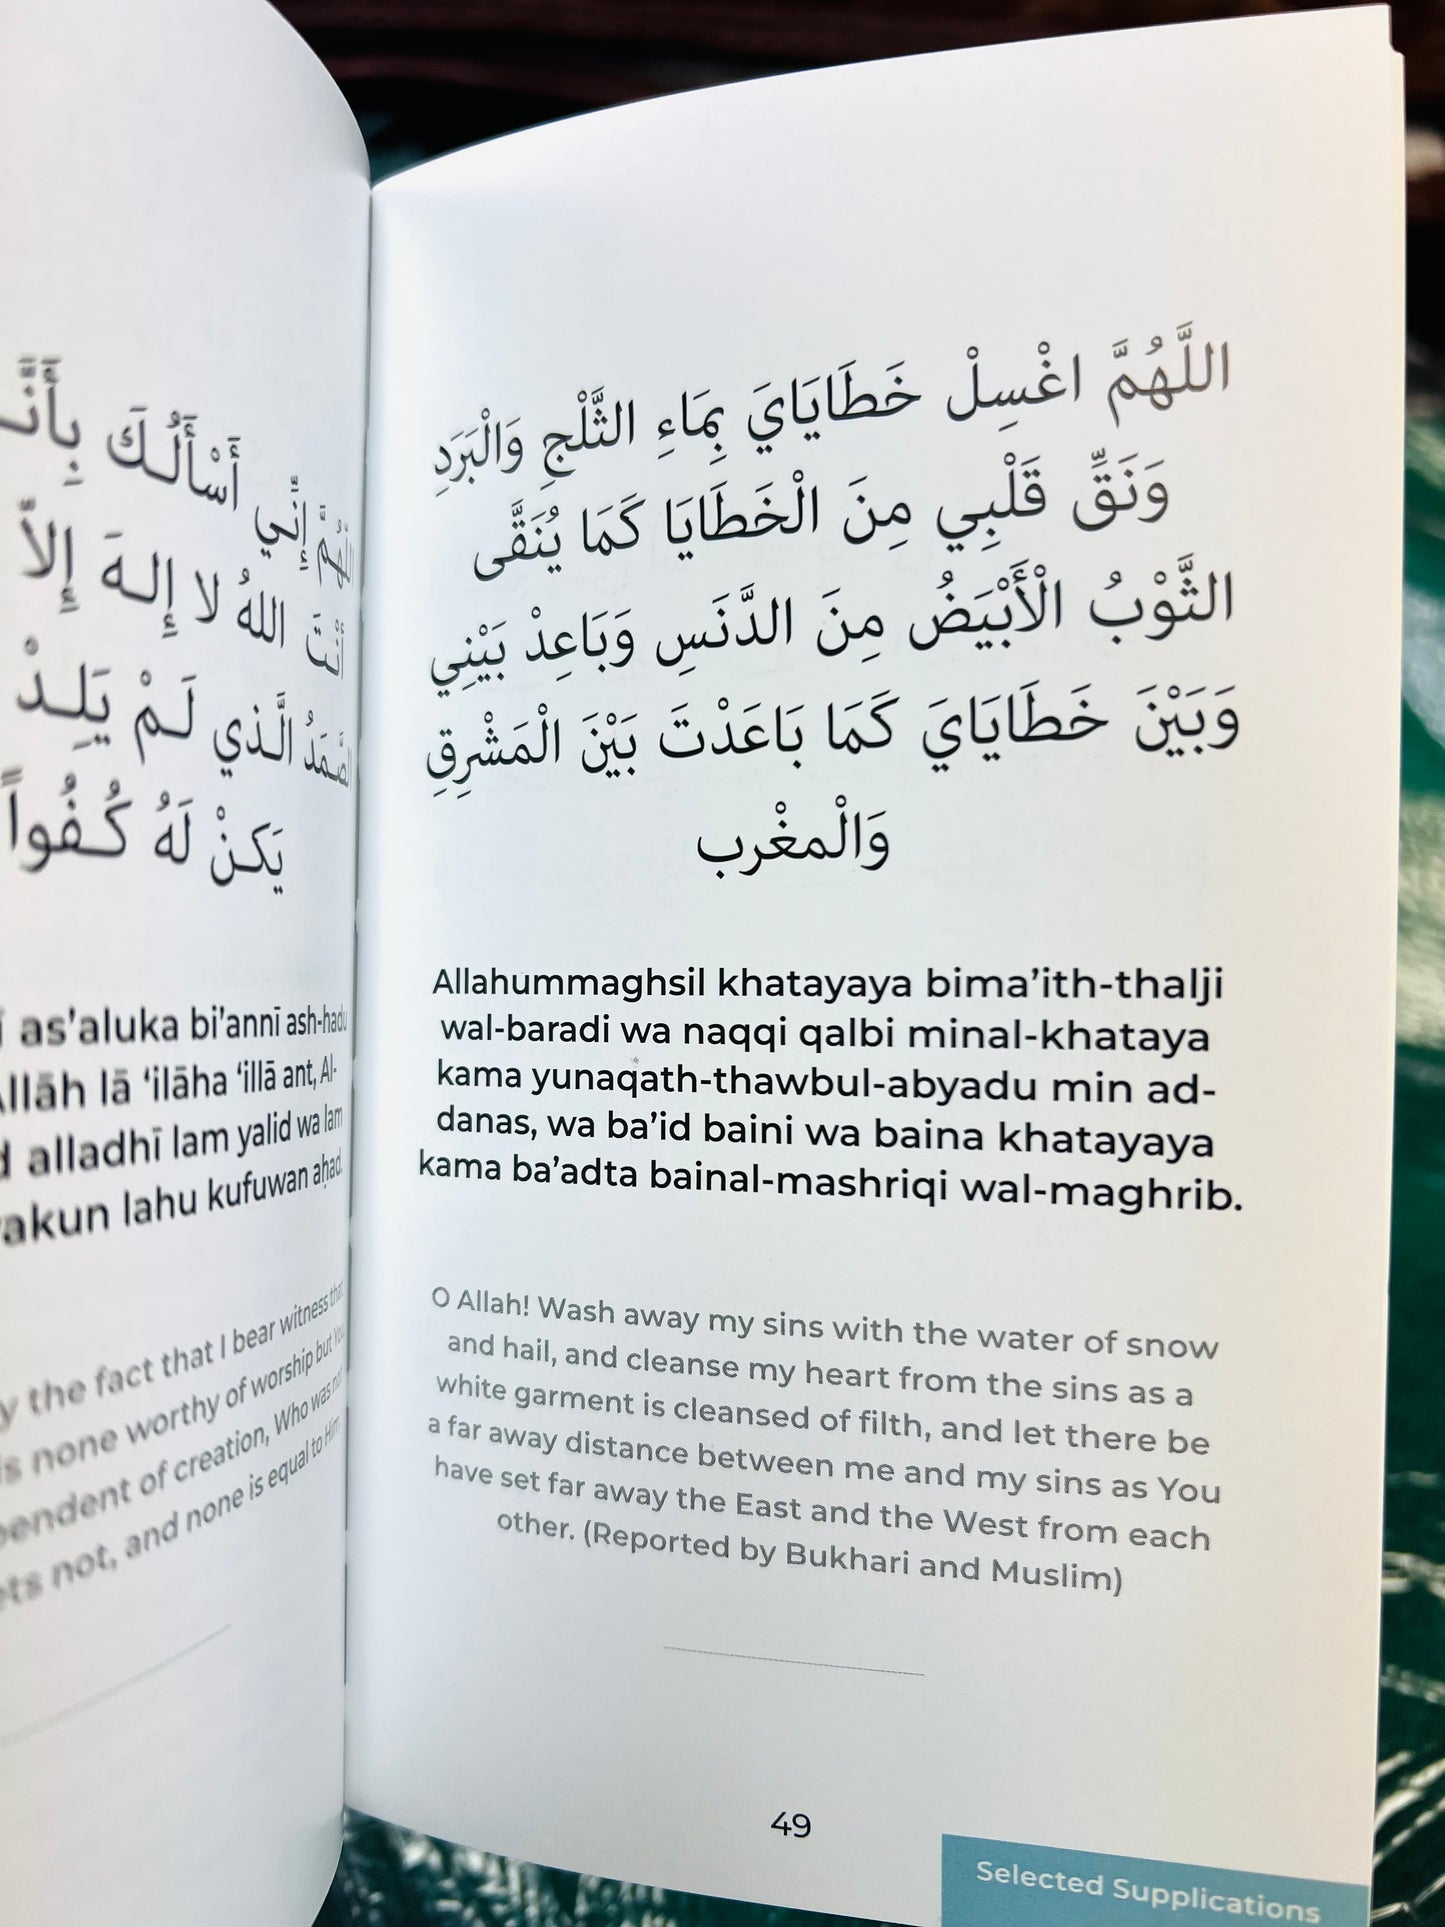 إِنِّي أَسْأَلُكَ
أَنْتَ اللهُ لا إِلهَ إِلاَّ
الصَّمَدُ الَّذي لَمْ يَلِدْ
يَكنْ لَهُ كُفُواً
as’aluka bi’annī ash-hadu
lā ‘ilāha ‘illā ant, Al-
alladhī lam yalid wa lam
lahu kufuwan aḥad.
the fact that I bear witness that
none worthy of worship but You
of creation, Who was not
not, and none is equal to Him
اللَّهُمَّ اغْسِلْ خَطَايَايَ بِمَاءِ الثَّلْجِ وَالْبَرَدِ
وَنَقِّ قَلْبِي مِنَ الْخَطَايَا كَمَا يُنَقَّى
الثَّوْبُ الْأَبْيَضُ مِنَ الدَّنَسِ وَبَاعِدْ بَيْنِي
وَبَيْنَ خَطَايَايَ كَمَا بَاعَدْتَ بَيْنَ الْمَشْرِقِ
وَالْمغْرب
Allahummaghsil khatayaya bima’ith-thalji
wal-baradi wa naqqi qalbi minal-khataya
kama yunaqath-thawbul-abyadu min ad-
danas, wa ba’id baini wa baina khatayaya
kama ba’adta bainal-mashriqi wal-maghrib.
O Allah! Wash away my sins with the water of snow
and hail, and cleanse my heart from the sins as a
white garment is cleansed of filth, and let there be
a far away distance between me and my sins as You
have set far away the East and the West from each
other. (Reported by Bukhari and Muslim)
49
Selected Supplications